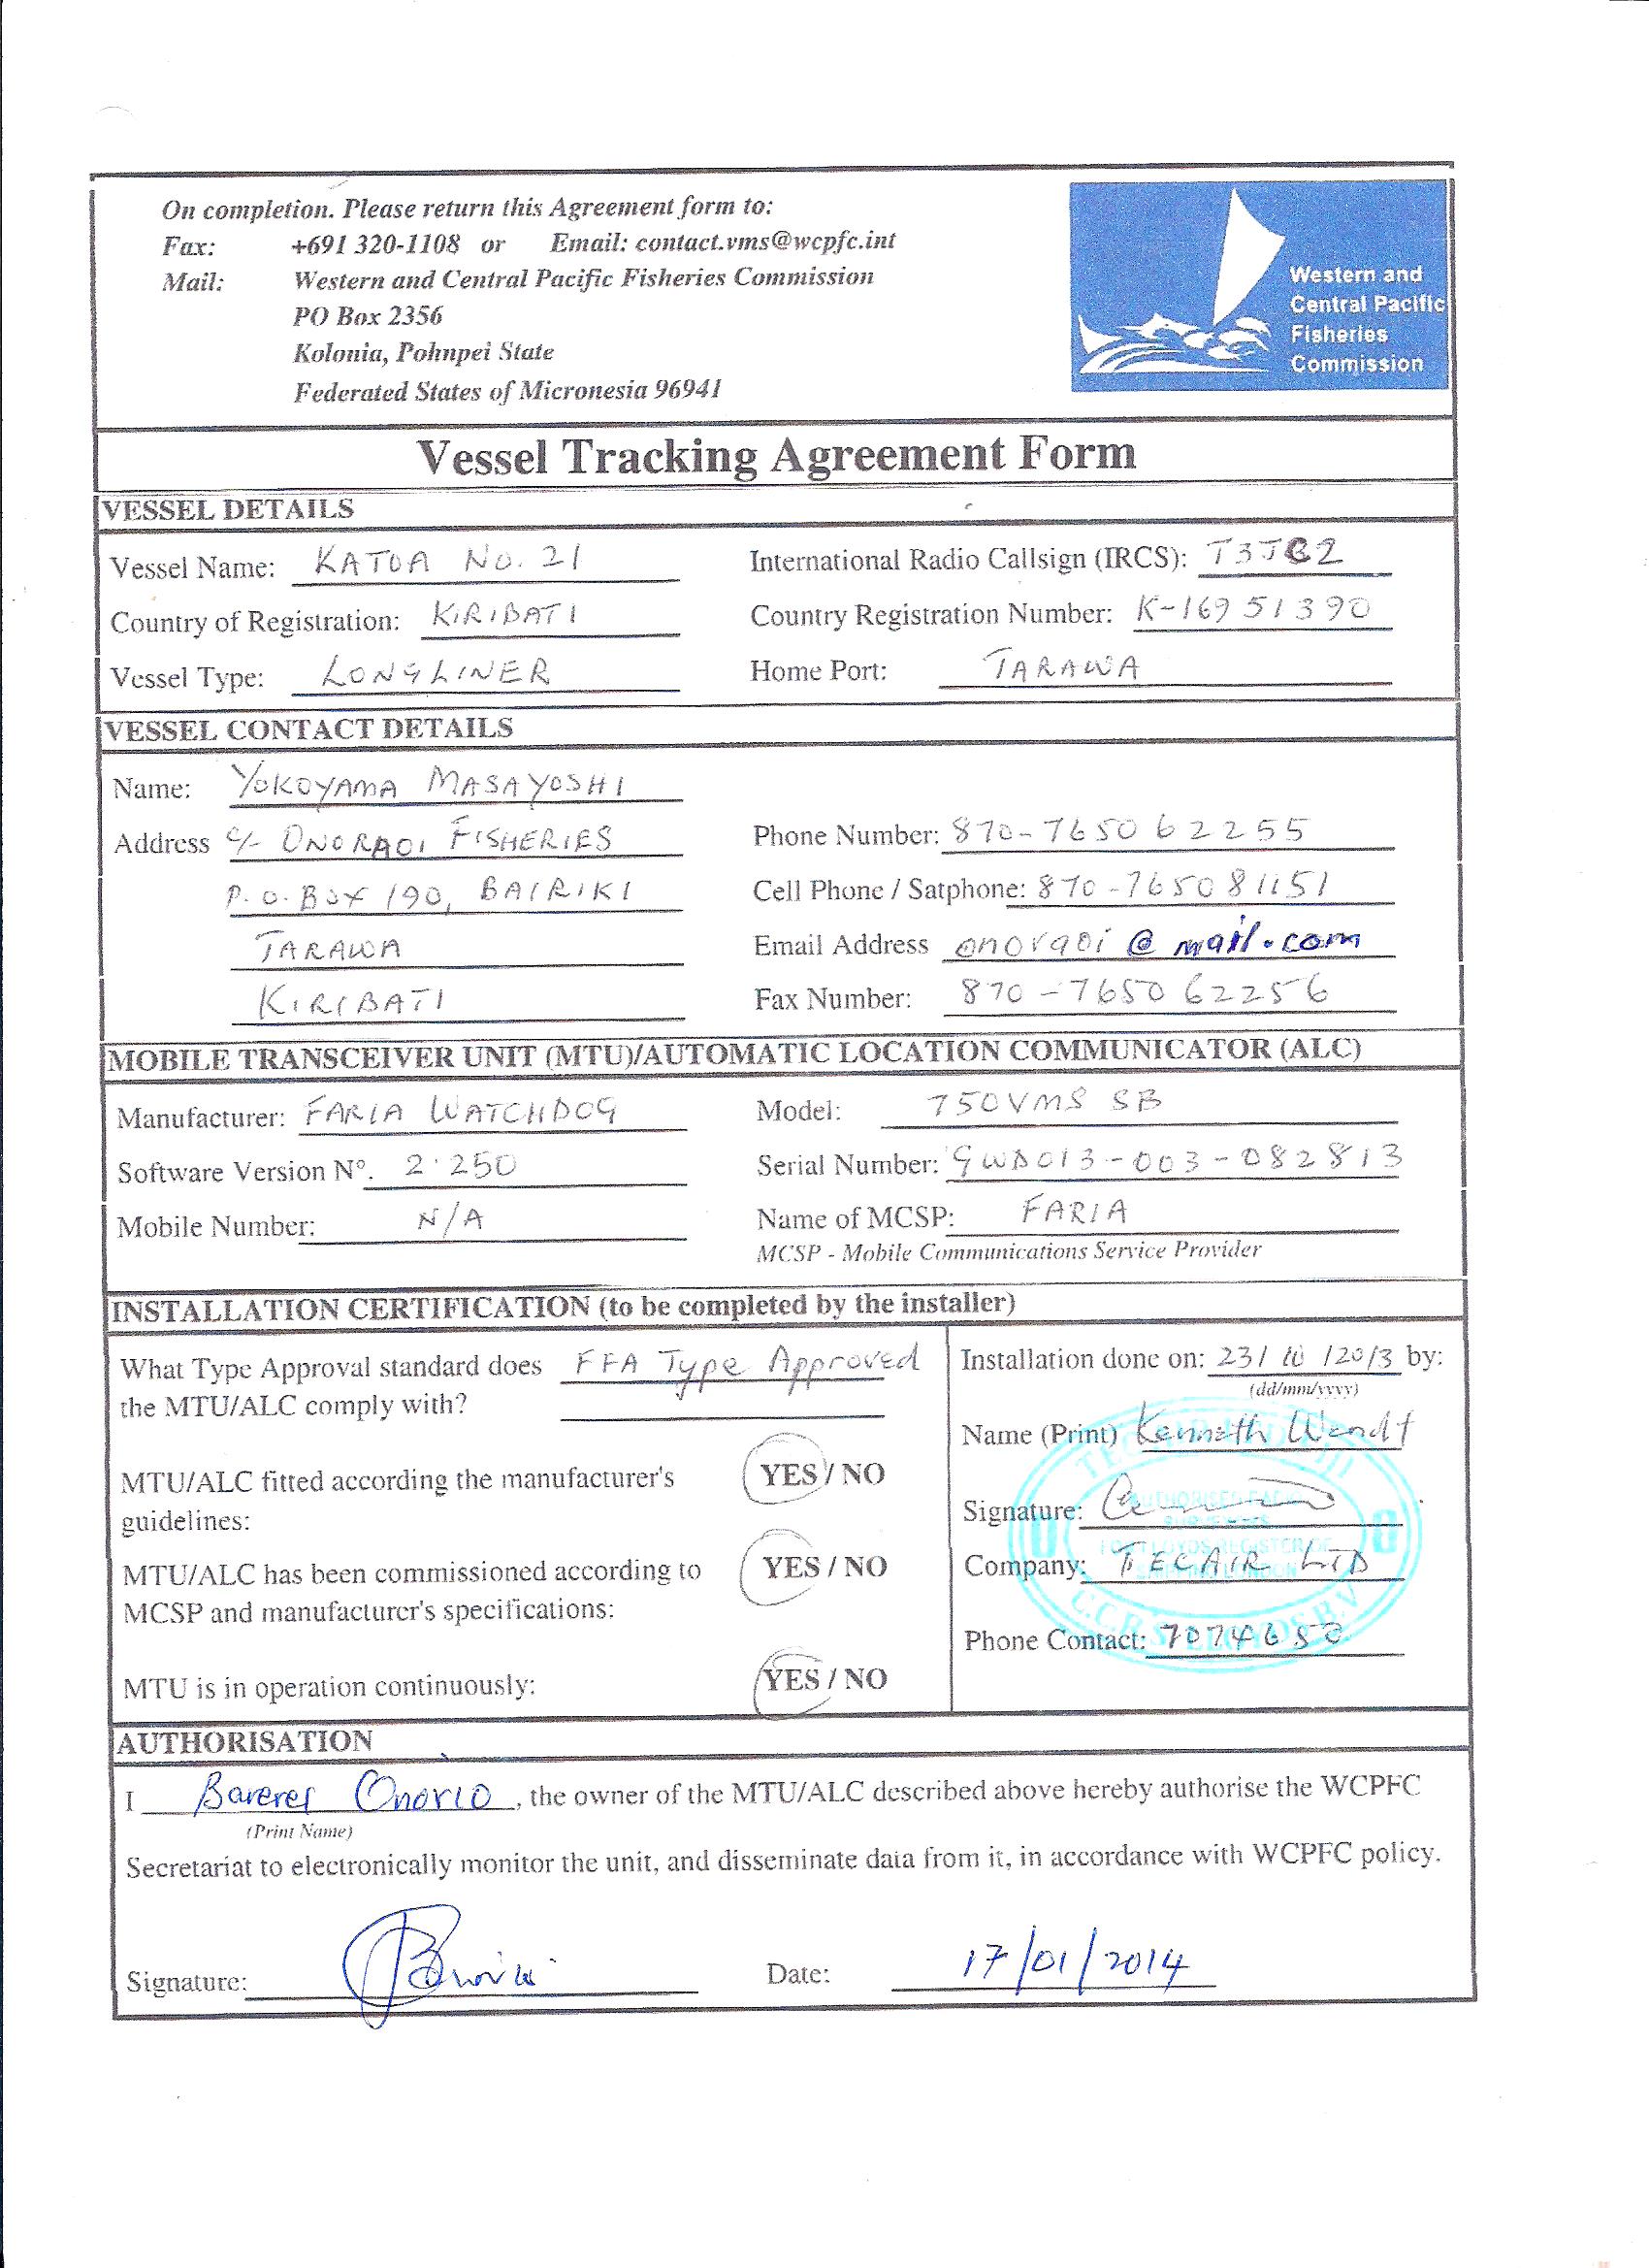 On completion. Please return this Agreement form to:
Fax: +691 320-1108 or Email: contact.vms@wcpfc.int
Mail: Western and Central Pacific Fisheries Commission
PO Box 2356
Kolonia, Pohnpei State
Federated States of Micronesia 96941
Western and
Central Pacific
Fisheries
Commission
Vessel Tracking Agreement Form
VESSEL DETAILS
Vessel Name: KATOA No. 21 International Radio Callsign (IRCS): T3JC2
Country of Registration: KIRIBATI Country Registration Number: K-16951390
Vessel Type: LONGLINER Home Port: TARAWA
VESSEL CONTACT DETAILS
Name: YOKOYAMA MASAYOSHI
Address c/- ONORAOI FISHERIES Phone Number: 870-765062255
P.O. BOX 190, BAIRIKI Cell Phone / Satphone: 870-765081151
TARAWA Email Address onoraoi@mail.com
KIRIBATI Fax Number: 870-765062256
MOBILE TRANSCEIVER UNIT (MTU)/AUTOMATIC LOCATION COMMUNICATOR (ALC)
Manufacturer: FARIA WATCHDOG Model: 750VMS SB
Software Version N°. 2.250 Serial Number: GWD013-003-082813
Mobile Number: N/A Name of MCSP: FARIA
MCSP - Mobile Communications Service Provider
INSTALLATION CERTIFICATION (to be completed by the installer)
What Type Approval standard does FFA Type Approved
the MTU/ALC comply with?
MTU/ALC fitted according the manufacturer's YES / NO
guidelines:
MTU/ALC has been commissioned according to YES / NO
MCSP and manufacturer's specifications:
MTU is in operation continuously: YES / NO
Installation done on: 23/10/2013 by:
(dd/mm/yyyy)
Name (Print) Kenneth Wendt
Signature:
Company: TECAIR LTD
Phone Contact: 7074650
AUTHORISATION
I Onorio, the owner of the MTU/ALC described above hereby authorise the WCPFC
(Print Name)
Secretariat to electronically monitor the unit, and disseminate data from it, in accordance with WCPFC policy.
Signature: Date: 17/01/2014